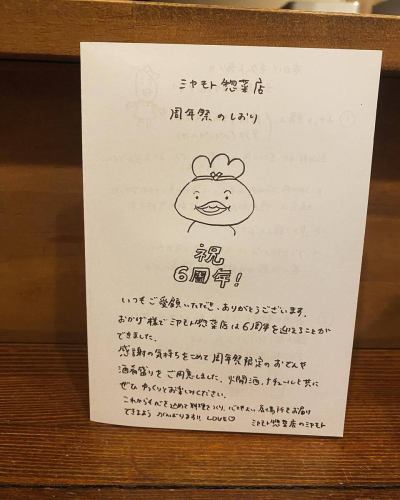 ミヤモト惣菜店
周年祭のしおり
祝
6周年!
いつもご愛顧いただき、ありがとうございます。
おかげ様でミヤモト惣菜店は6周年を迎えることが
できました。
感謝の気持ちをこめて周年祭限定のおでんや
酒肴盛りをご用意しました。火燗酒、ナチュールと共に
ぜひゆっくりとお楽しみください。
これからも心を込めて料理をつくり、心地よい居場所をお届け
できるようがんばります!! LOVE♡
ミヤモト惣菜店のミヤモト